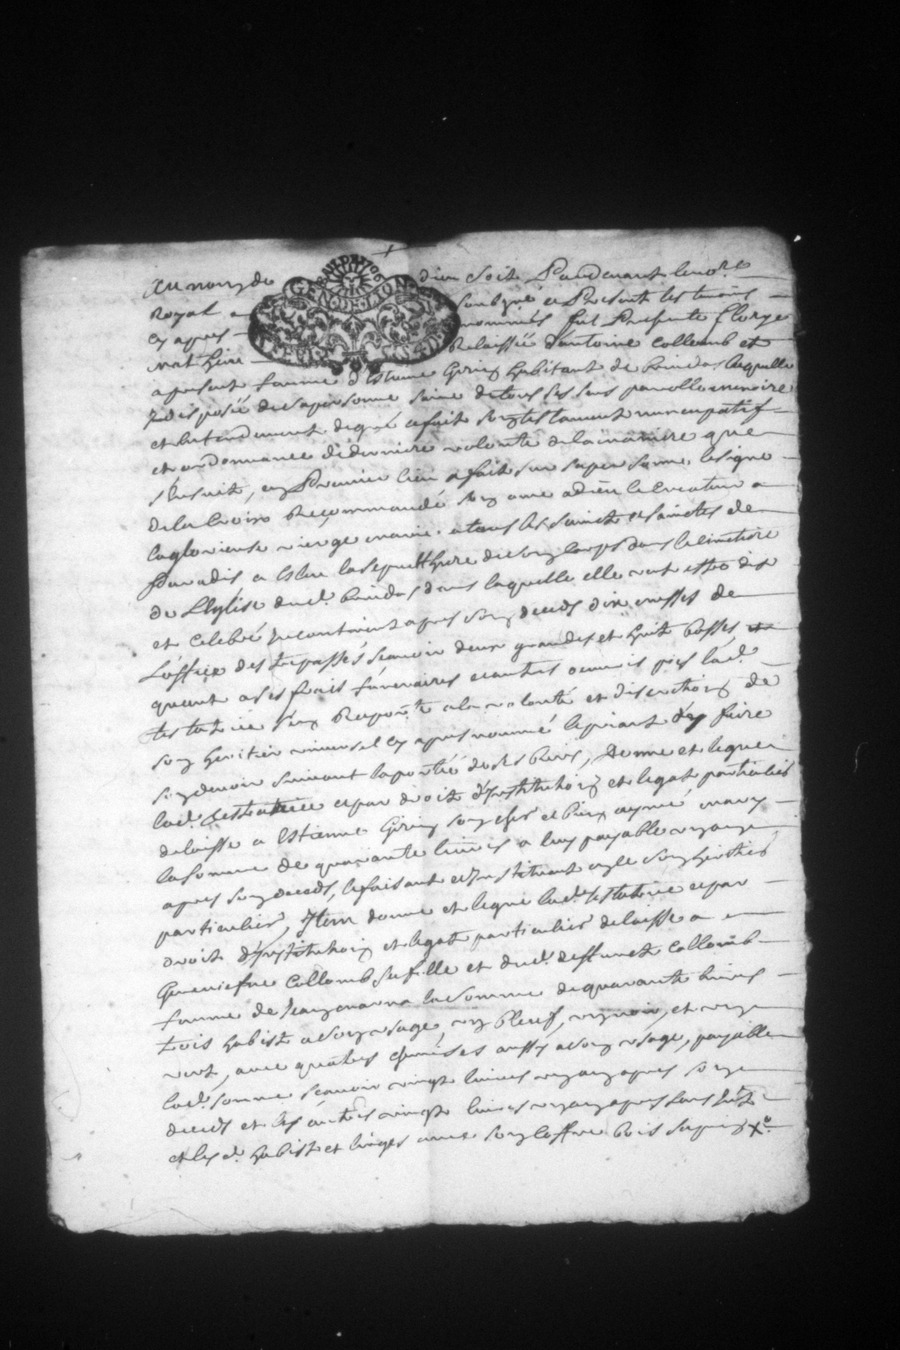 Au nom de dieu Soit Pardevant le no.re
Royal soubzné et Presents les temoins
cy apres nommés fut Presente Florye
relaissée d'antoine Collomb et
a present famme d'Estienne Griny habitant de laquelle
disposée de sa personne saine de tous ses sens parolle memoire
et entendement de gré a fait son testament nuncupatif
et ordonnance de derniere volonté de la maniere que
s'ensuit, en Premier lieu a fait sur sa personne le signe
de la Croix Recommandé son ame a dieu le Createur a
la glorieuse vierge marie a tous les saincts et sainctes de
Paradis a Eslu la sepulthure de son corps dans le cimetiere
de L'Eglise dud. dans laquelle elle veut estre dit
et celebré incontinent apres son deceds dix messes de
L'office des trepassés scavoir deux grandes et huit basses et
quant a ses frais funeraires et autres œuvres pies lad.
testatrice s'en Rapporte a la volonté et discrethion de
son heritier universel cy apres nommé le priant d'en faire
son devoir suivant la portée de ses biens, Donne et legue
lad. testatrice et par droit d'Institution et legat particulier
delaisse a Estienne Griny son cher et bien aymé mary
la somme de quarante livres a luy payable
apres son deceds, le faisant et Instituant en ce son heritier
particulier, Item donne et legue lad. testatrice et par
droit d'Institution et legat particulier delaisse a
Geneviefve Collomb sa fille et dud. deffunct Collomb
famme de la somme de quarante livres
trois habist a son usage, un bleuf, un noir, et un
vert, avec quatres chemises aussy a son usage, payable
lad. somme scavoir vingt livres un an apres son
deceds et les autres vingt livres un an apres sans
et les d. habist et linges avec son coffre bois sapin